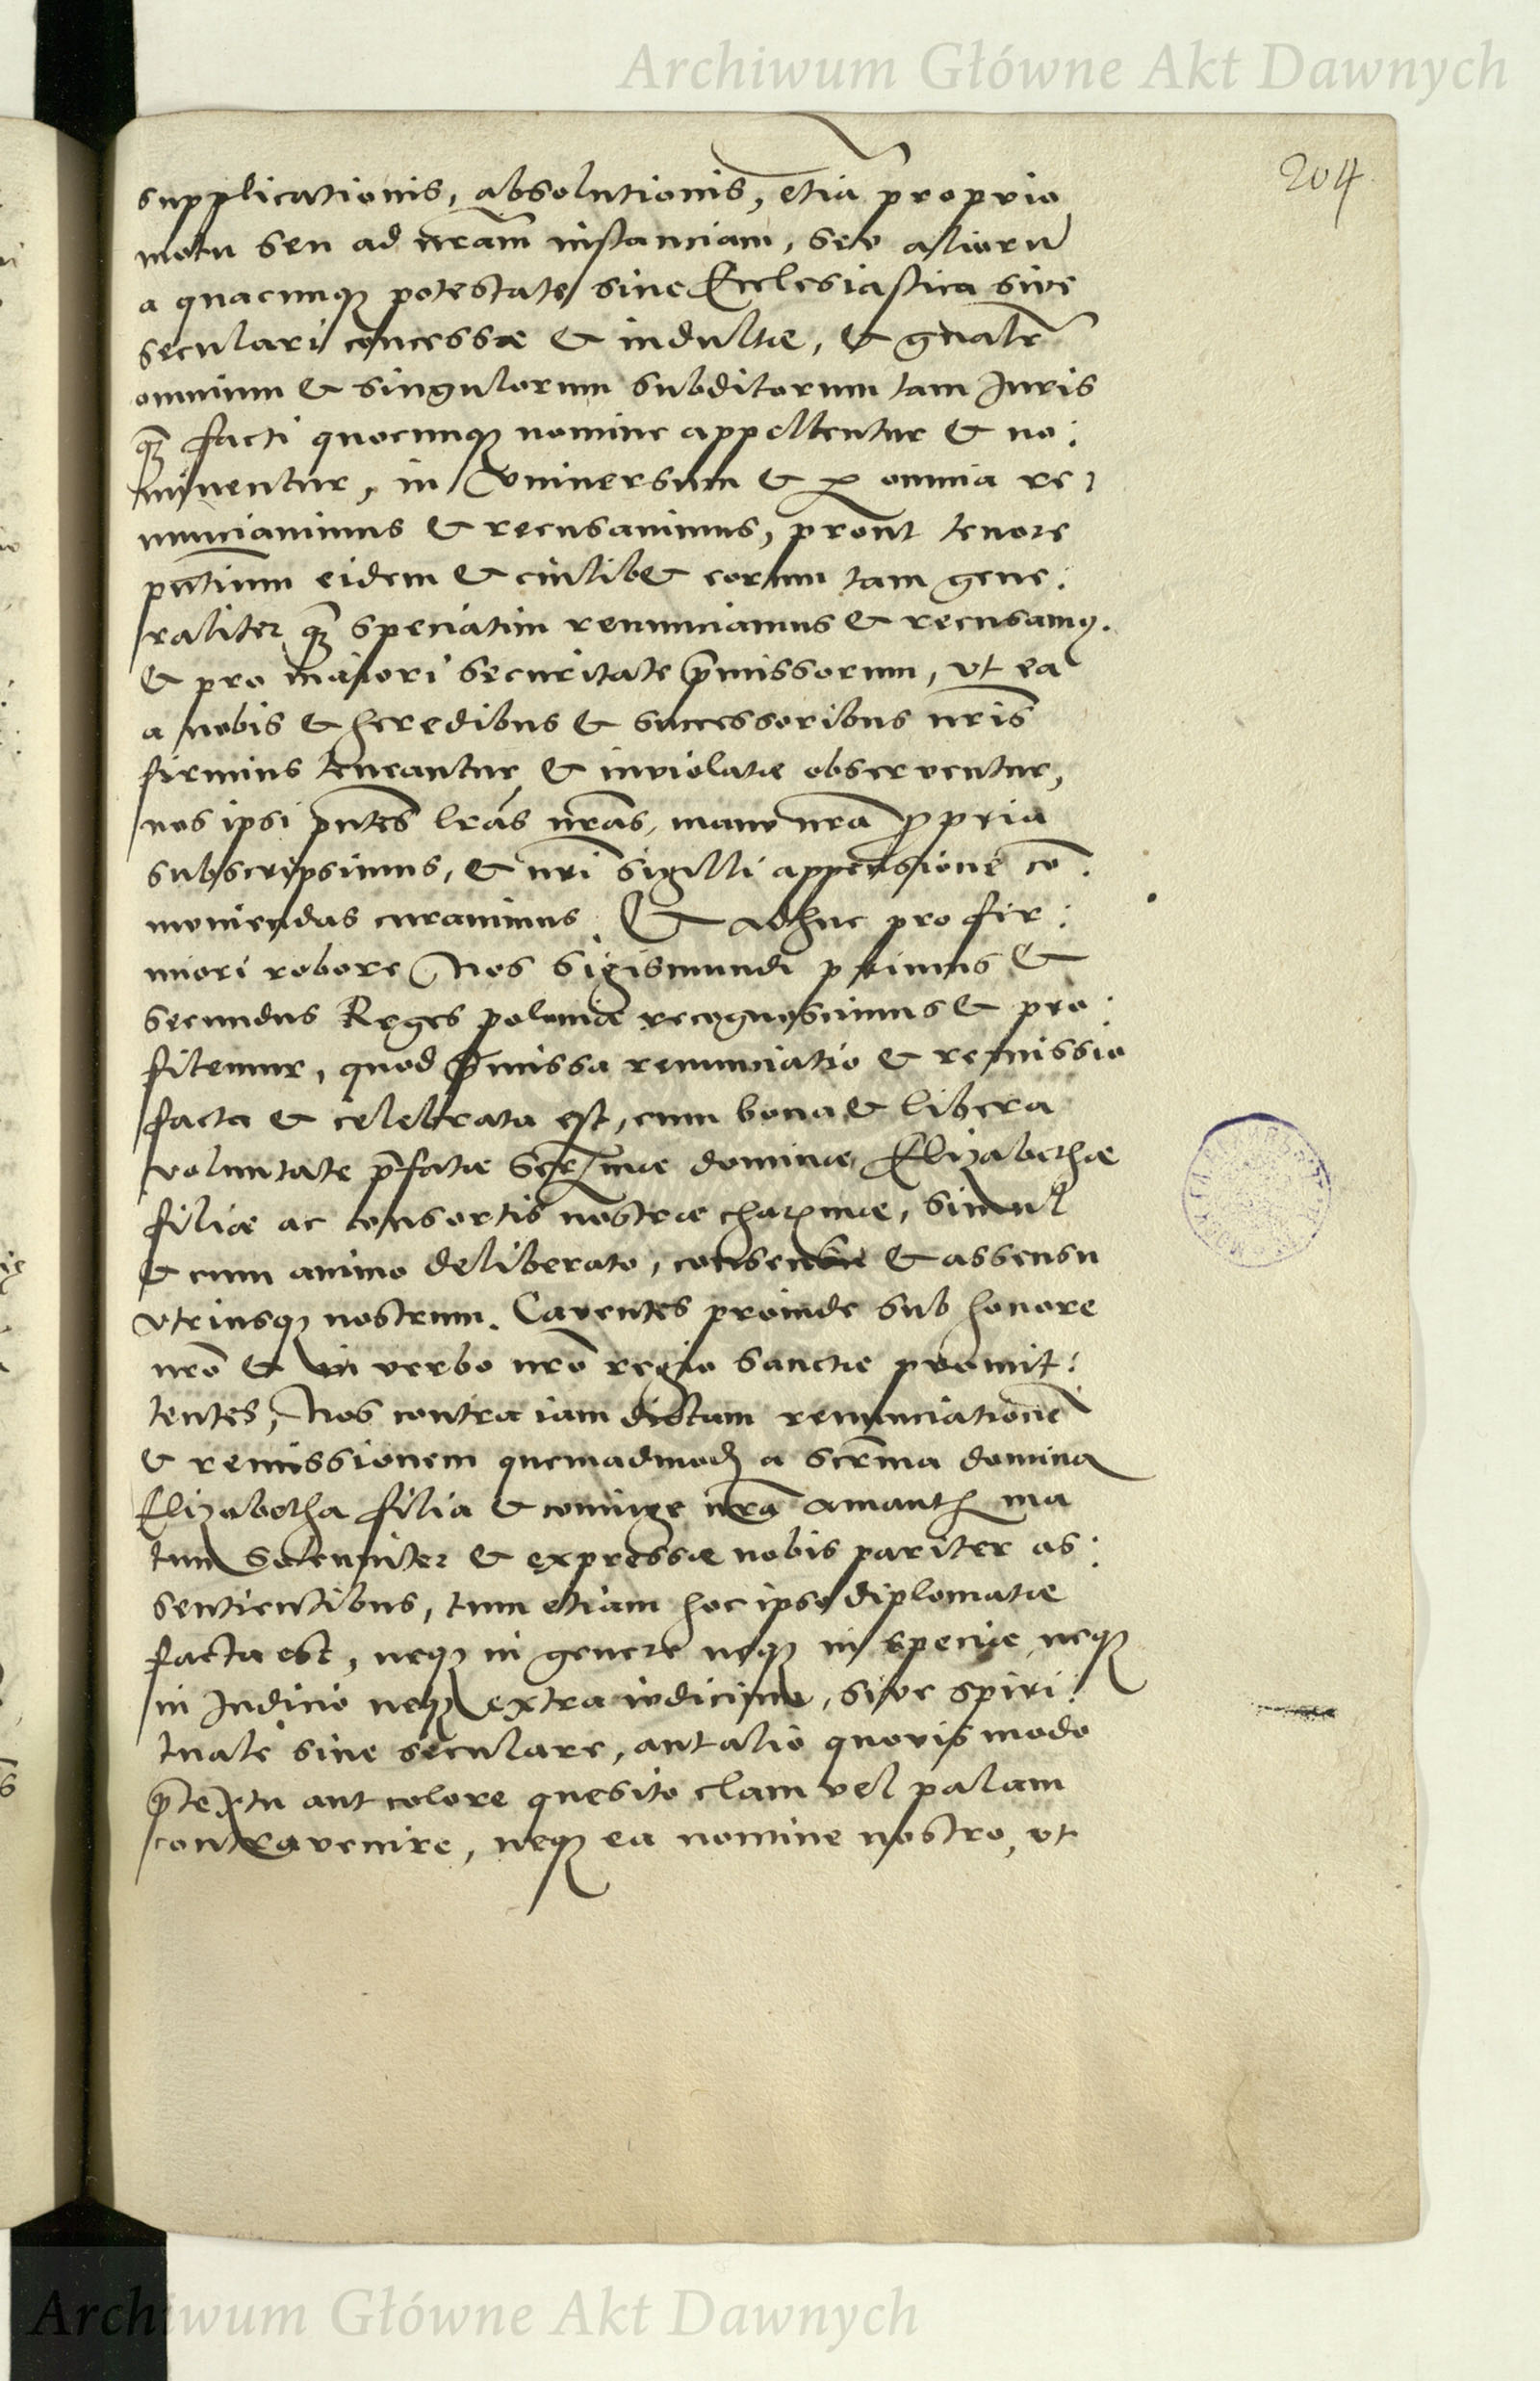 Archiwum Główne Akt Dawnych
204
supplicationis, absolutionis, etiā proprio
motu seu ad nram̄ instanciam, seu aliorū
a quacunqꝫ potestate siue Ecclesiastica siue
seculari concessæ & indultæ, & gnālr̄
omnium & singulorum subditorum tam Juris
qꝫ̄ facti quocunqꝫ nomine appellentur & no:
minentur, in Vniuersum & ꝑ omnia re:
nunciauimus & recusauimus, prout tenore
pn̄tium eidem & cuilib& eorum tam gene:
raliter qꝫ̄ speciatim renunciamus & recusamꝰ.
& pro maiori securitate p̄missorum, vt ea
a nobis & heredibus & successoribus nris̄
firmius teneantur & inviolatæ observentur,
nos ipsi pn̄tes lrās nrās, manu nrā ꝓpria
subscripsimus, & nrī sigilli appensione cō:
muniendas curauimus. Et adhuc pro fir:
miori robore Nos Sigismundi primus &
secundus Reges poloniæ recognoscimus & pro:
fitemur, quod p̄missa renunciatio & remissio
facta & celebrata est, cum bona & libera
voluntate p̄fatæ Serꝫmæ dominæ Elizabethæ
filiæ ac consortis nostræ charꝫmæ, simul
& cum animo deliberato, consensu & assensu
vtriusqꝫ nostrum. Caventes proinde sub honore
nrō & in verbo nrō regio sanctæ promit:
tentes, Nos contra iam dictam renunciationē
& remissionem quemadmodꝫ a serm̄a domina
Elizabetha filia & coniuge nrā amantꝫ ma
tum solenniter & expressæ nobis pariter as:
sentientibus, tum etiam hoc ipso diplomatæ
facta est, neqꝫ in genere neqꝫ in speciæ neqꝫ
in Judicio neqꝫ extra iudicium, siue spiri:
tuale siue seculare, aut alio quovis modo
p̄textu aut colore quesito clam vel palam
contravenire, neqꝫ ea nomine nostro, vt
Archiwum Główne Akt Dawnych